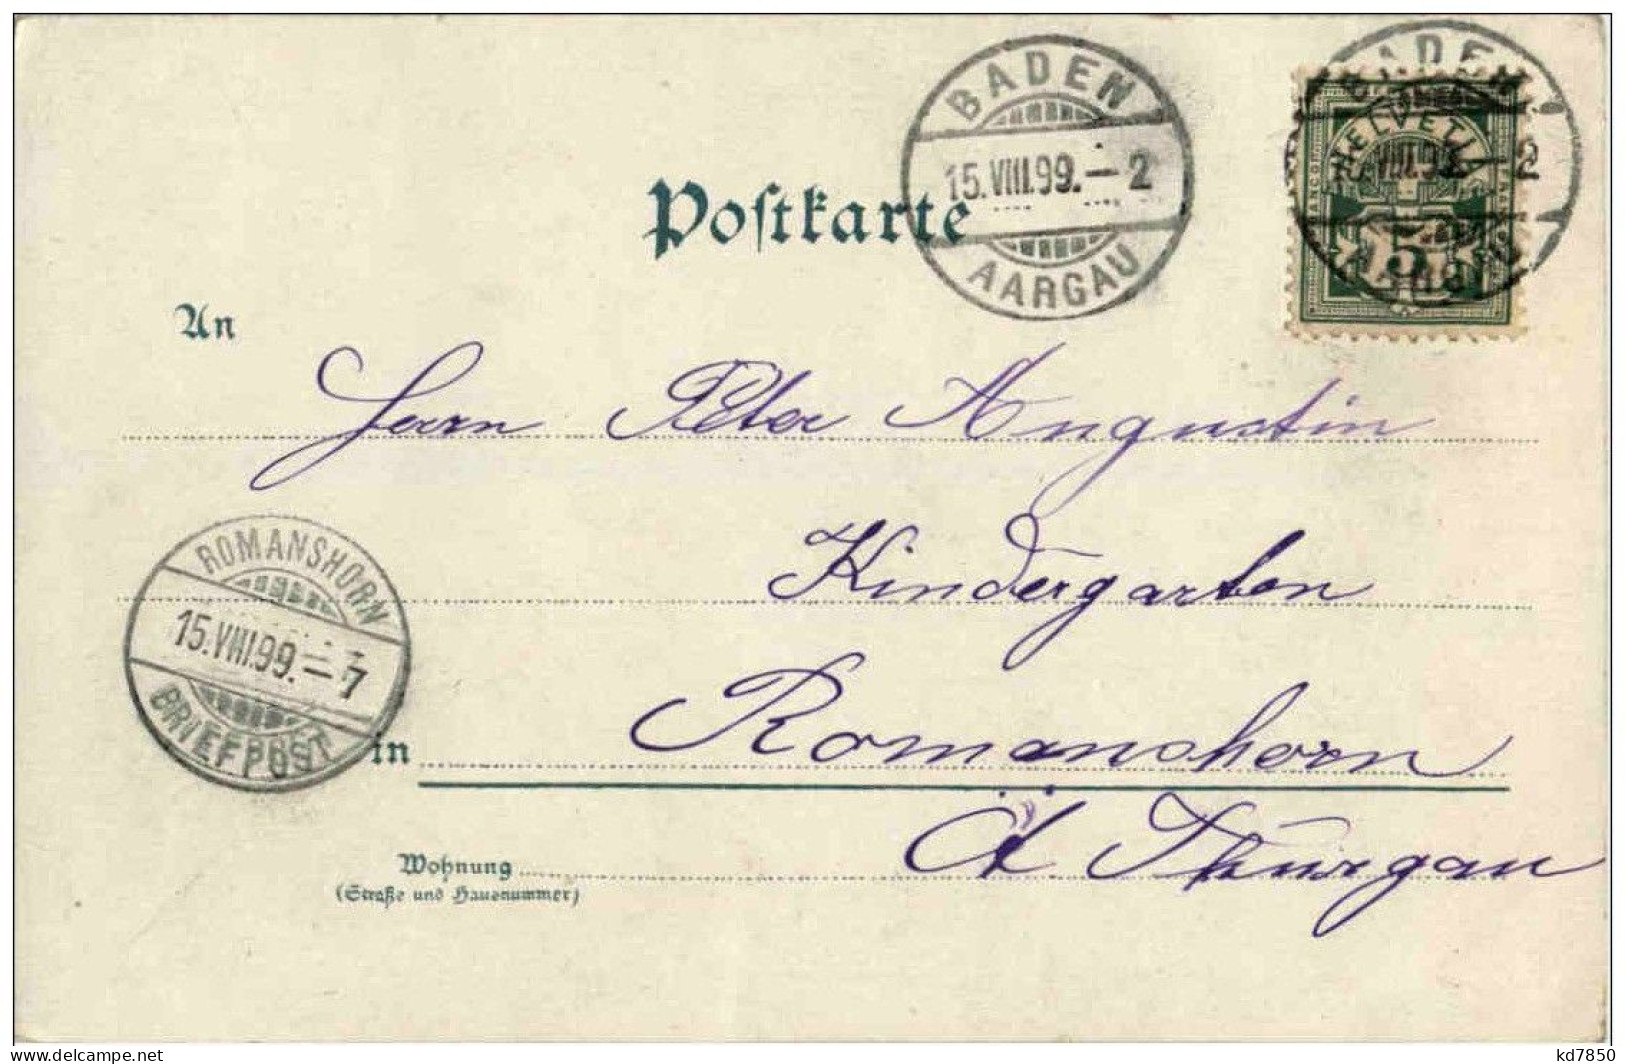 BADEN
15.VIII.99.–2
AARGAU
BADEN
HELVETIA
VIII.99.–2
5
AARGAU
Postkarte
An
Herrn Peter Augustin
Kindergarten
ROMANSHORN
15.VIII.99.–7
BRIEFPOST
in Romanshorn
Ct. Thurgau
Wohnung
(Straße und Hausnummer)
www.delcampe.net
kd7850